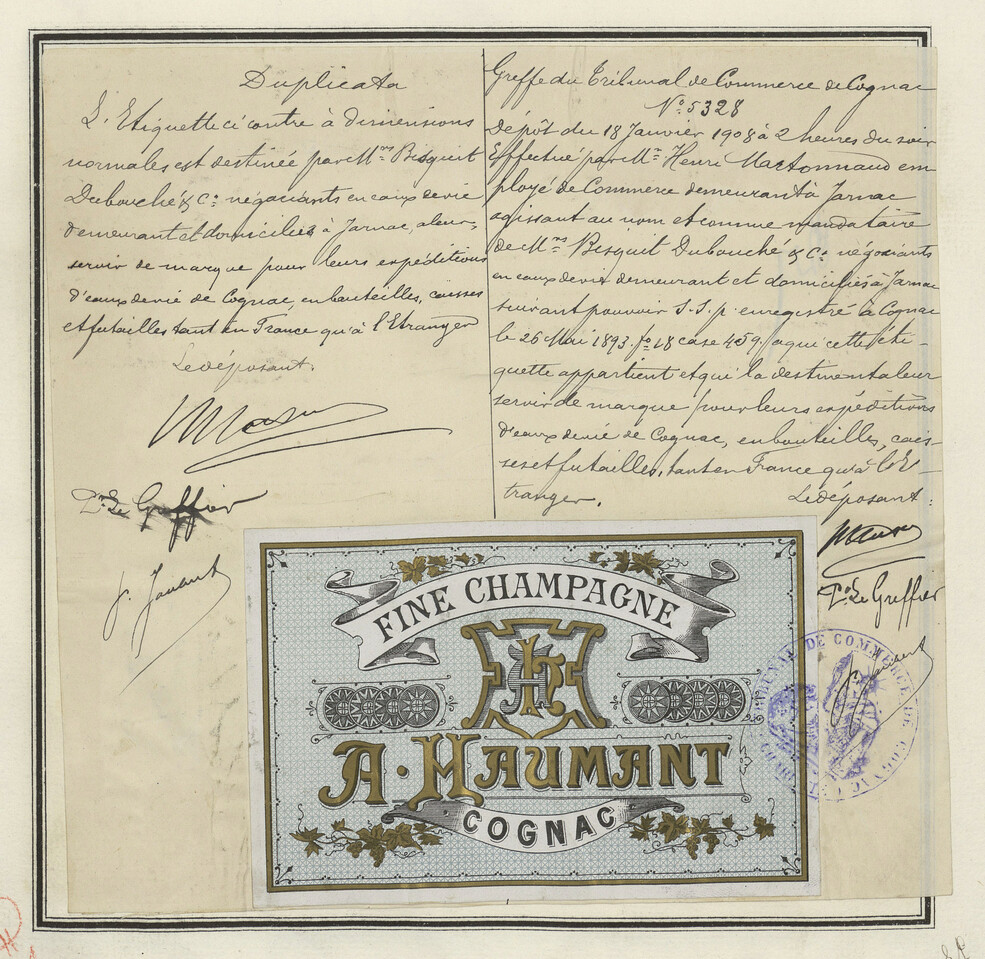 Duplicata
L'Etiquette ci contre à dimensions
normales est destinée par Mrs Bisquit
Dubouché & Co négociants en eaux de vie
demeurant et domiciliés à Jarnac, à leur
servir de marque pour leurs expéditions
d'eaux de vie de Cognac, en bouteilles, caisses
et futailles tant en France qu'à l'Etranger
Le déposant.
Pr Le Greffier
Greffe du Tribunal de Commerce de Cognac
No 5328
Dépôt du 18 Janvier 1908 à 2 heures du soir
Effectué par Mr Henri em
ployé de Commerce demeurant à Jarnac
agissant au nom et comme mandataire
de Mrs Bisquit Dubouché & Co négociants
en eaux de vie demeurant et domiciliés à Jarnac
suivant pouvoir S.S.p. enregistré à Cognac
le 26 Mai 1893. fo 18 case 459. à qui cette éti-
quette appartient et qui la destinent à leur
servir de marque pour leurs expéditions
d'eaux de vie de Cognac, en bouteilles, cais-
ses et futailles, tant en France qu'à l'E-
tranger.
Le déposant:
Pr Le Greffier
FINE CHAMPAGNE
AH
A. HAUMANT
COGNAC
TRIBUNAL DE COMMERCE DE COGNAC